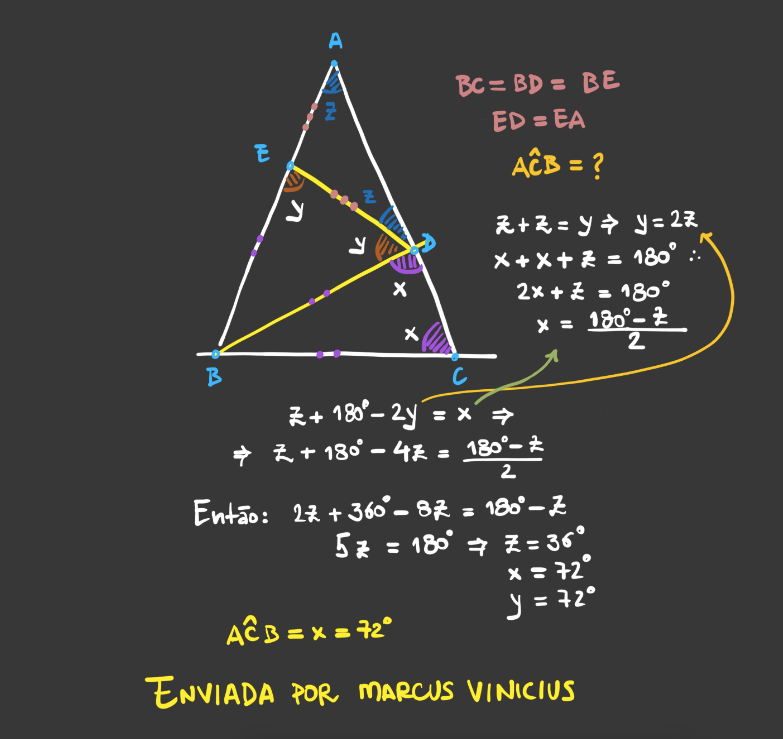 A
z
BC = BD = BE
ED = EA
AĈB = ?
E
y
z
y
D
x
x
B
C
z + z = y ⇒ y = 2z
x + x + z = 180° ∴
2x + z = 180°
x = 180° - z / 2
z + 180° - 2y = x ⇒
⇒ z + 180° - 4z = 180° - z / 2
Então: 2z + 360° - 8z = 180° - z
5z = 180° ⇒ z = 36°
x = 72°
y = 72°
AĈB = x = 72°
ENVIADA POR MARCUS VINICIUS